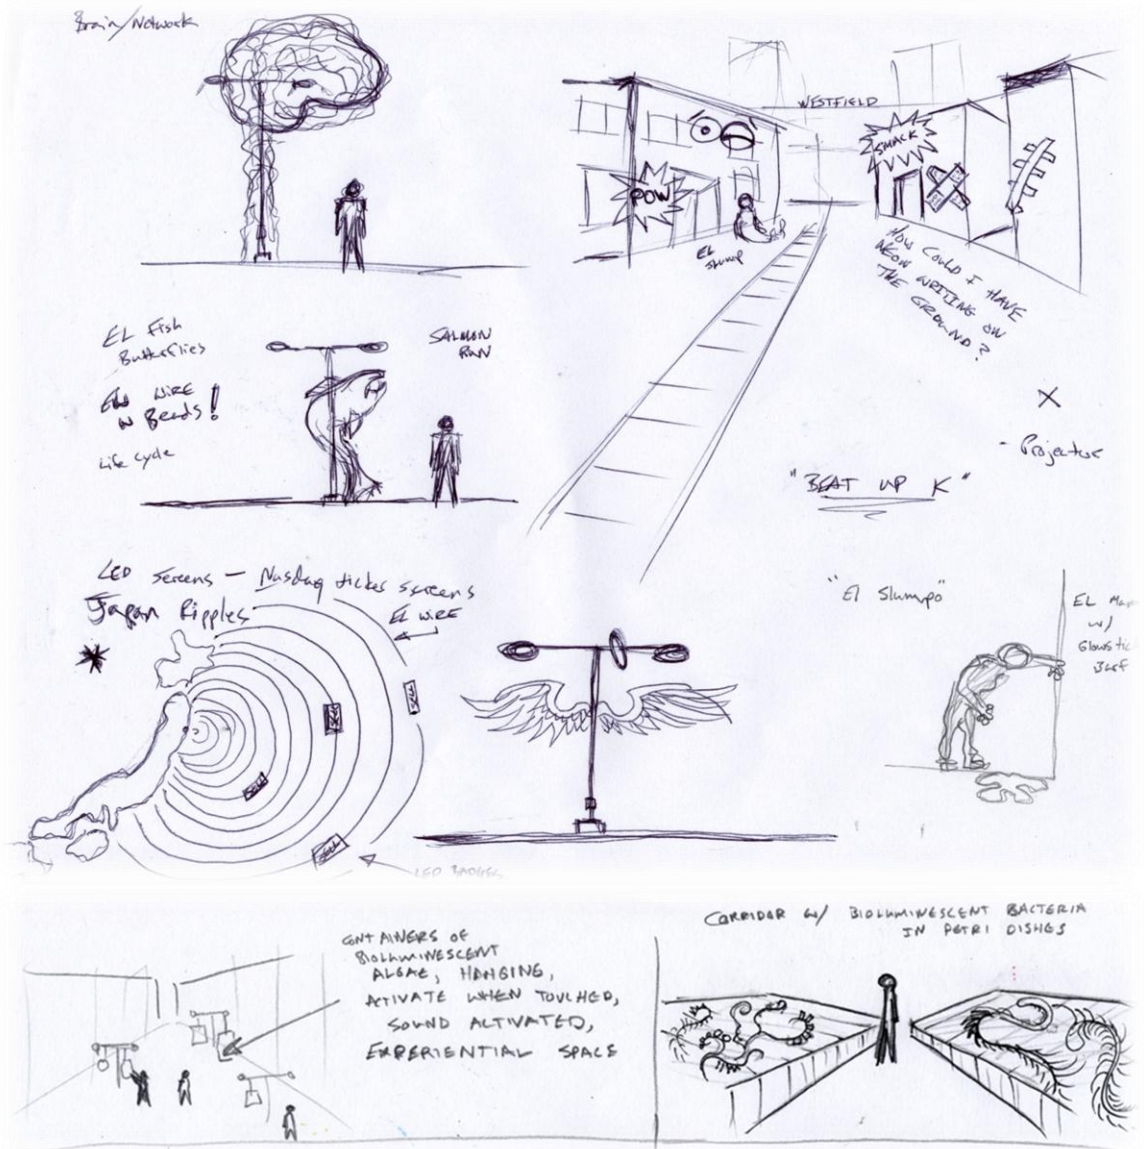 Brain/Network
WESTFIELD
SMACK
POW
EL
Slump
HOW COULD I HAVE
NEON WRITING ON
THE GROUND?
EL Fish
Butterflies
SALMON
RUN
WIRE
W Beads!
Life Cycle
X
- Projector
"BEAT UP K"
LED Screens - Nasdaq ticker screens
Japan Ripples
EL WIRE
"El Slumpo"
EL
w/
Glowstick
LED
CONTAINERS OF
BIOLUMINESCENT
ALGAE, HANGING,
ACTIVATE WHEN TOUCHED,
SOUND ACTIVATED,
EXPERIENTIAL SPACE
CORRIDOR W/ BIOLUMINESCENT BACTERIA
IN PETRI DISHES